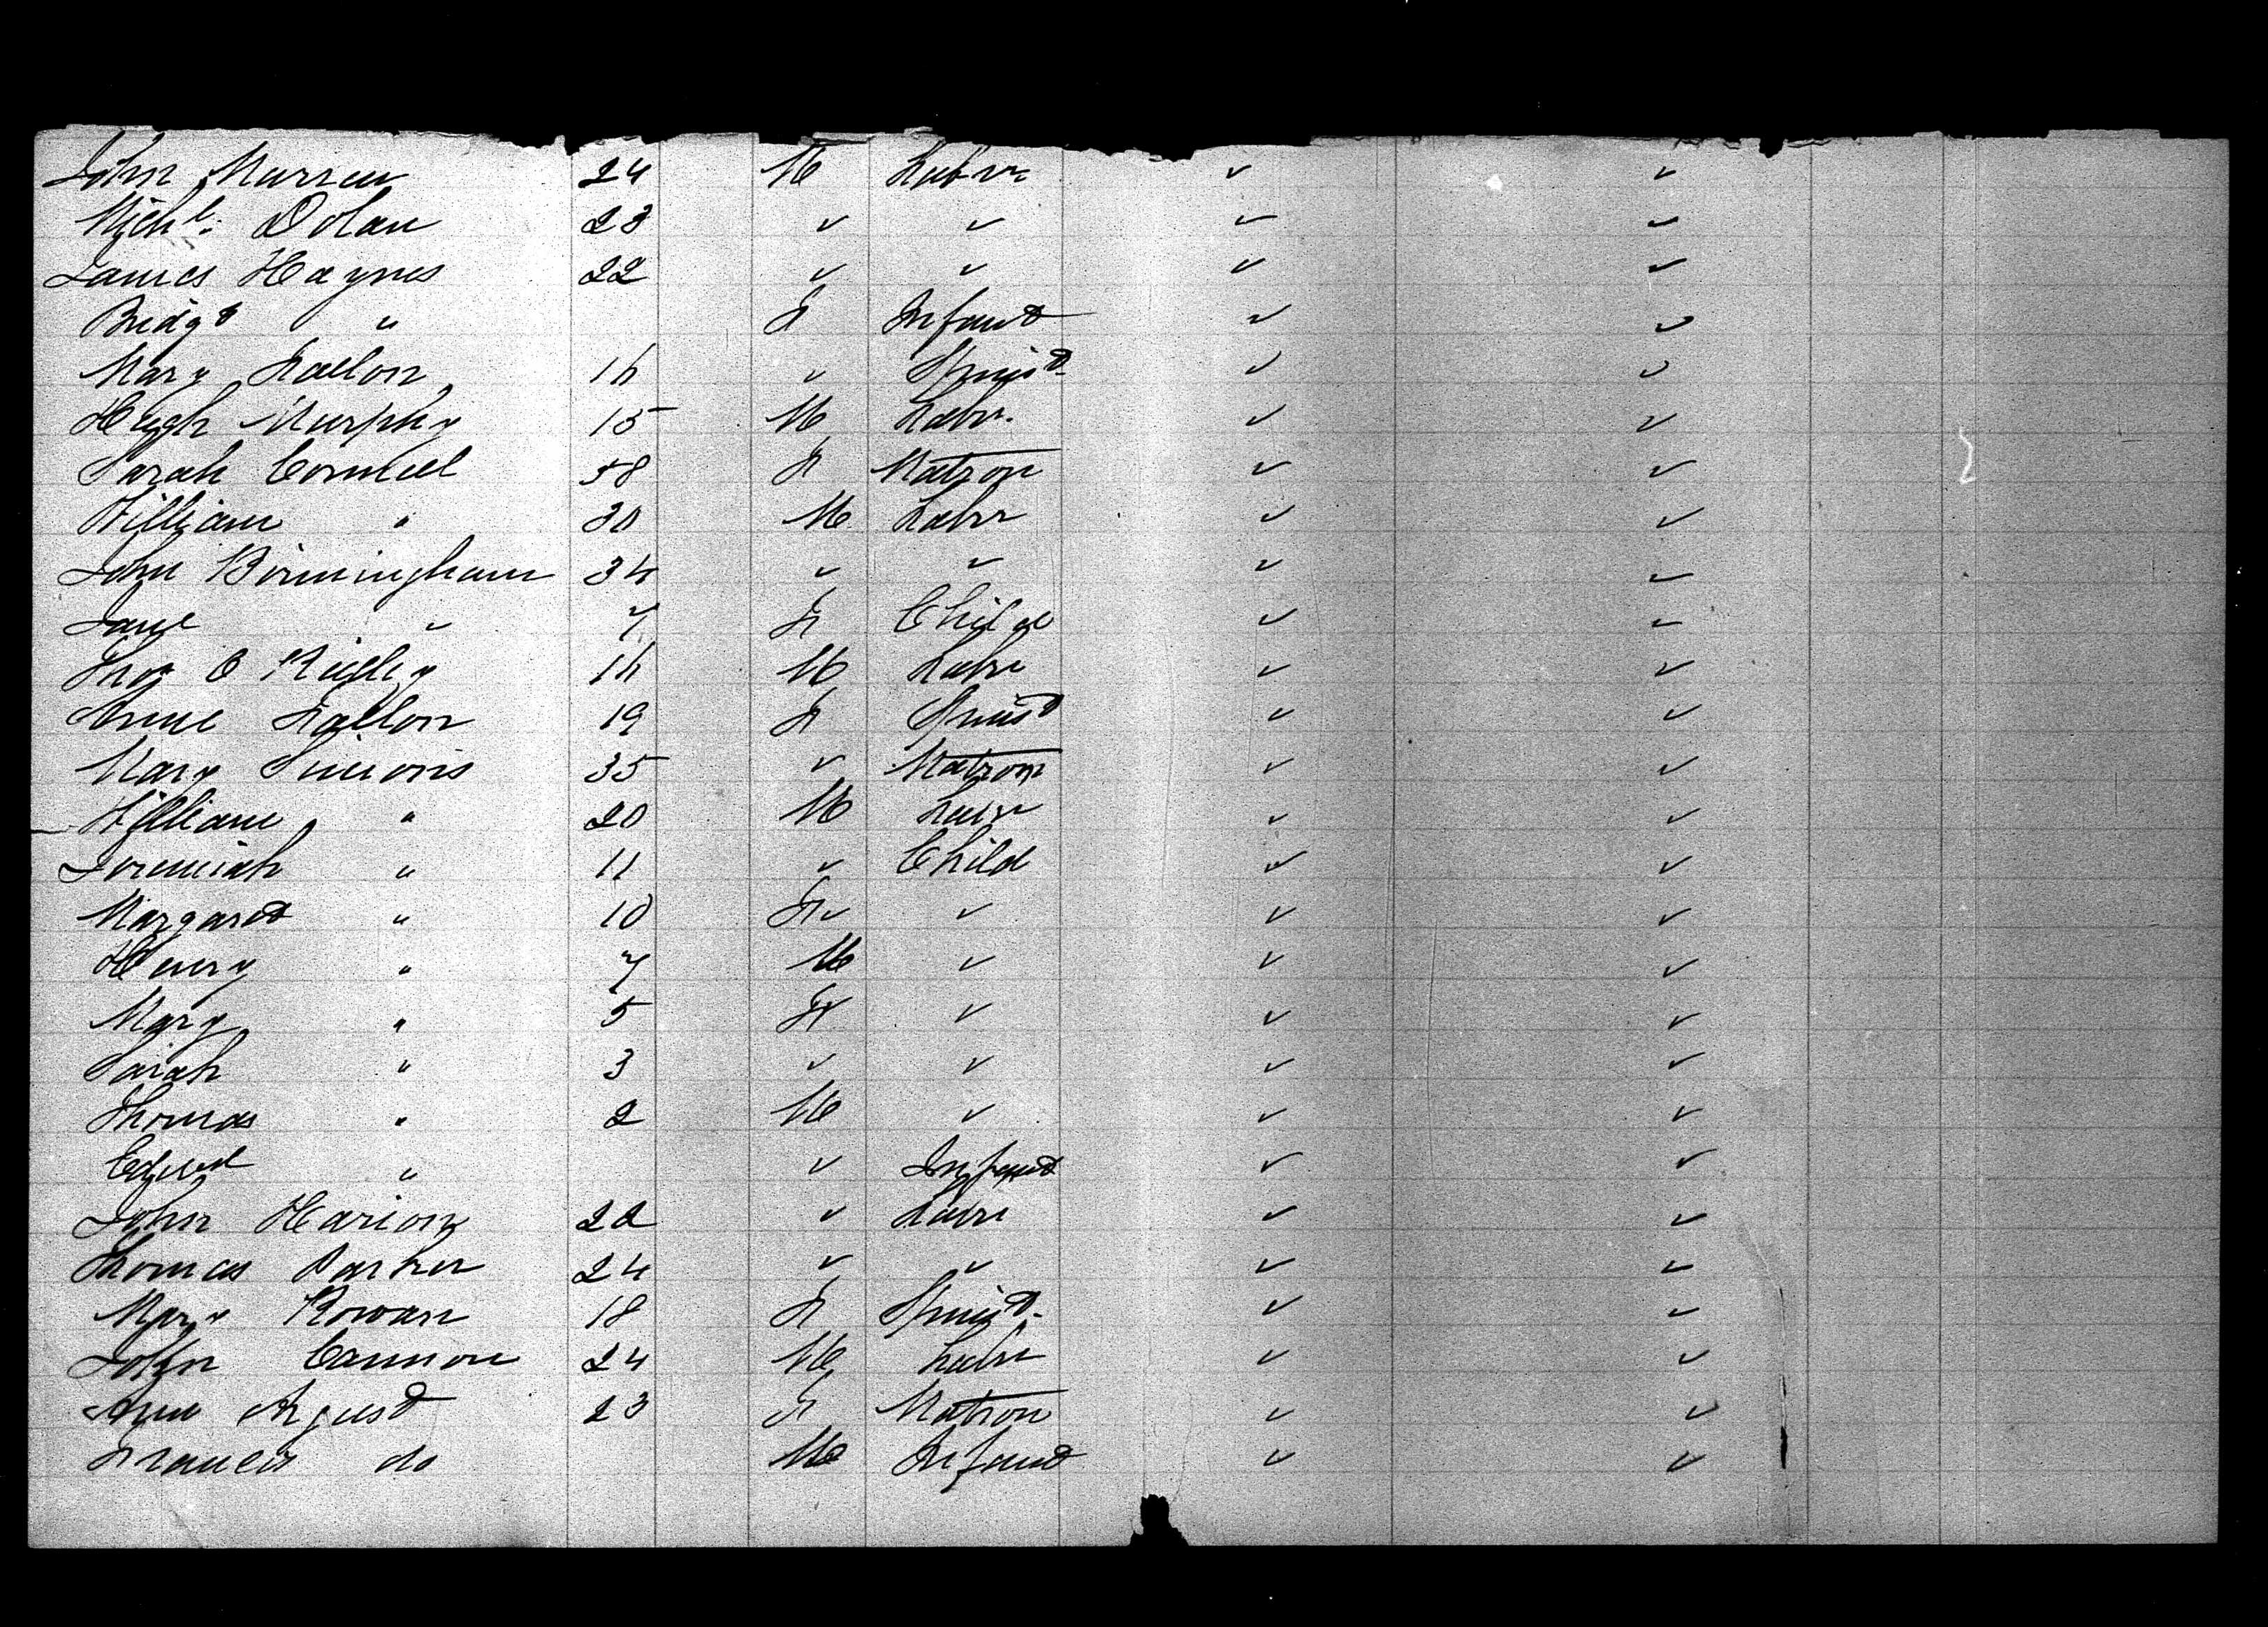 John Murren 24 M Labr ✓ ✓
Michl. Dolan 23 ✓ ✓ ✓ ✓
James Haynes 22 ✓ ✓ ✓ ✓
Bridgt " F Infant ✓ ✓
Mary Fallon 16 ✓ Spinst ✓ ✓
Hugh Murphy 15 M Labr. ✓ ✓
Sarah Cornell 58 F Matron ✓ ✓
William " 30 M Labr ✓ ✓
John Birmingham 34 ✓ ✓ ✓ ✓
Jane " 7 F Child ✓ ✓
Thos O Rielly 16 M Labr ✓ ✓
Anne Fallon 19 F Spinst ✓ ✓
Mary Simons 35 ✓ Matron ✓ ✓
William " 20 M Labr ✓ ✓
Jeremiah " 11 ✓ Child ✓ ✓
Margaret " 10 F ✓ ✓ ✓
Henry " 7 M ✓ ✓ ✓
Mary " 5 F ✓ ✓ ✓
Sarah " 3 ✓ ✓ ✓ ✓
Thomas " 2 M ✓ ✓ ✓
Edwd " ✓ Infant ✓ ✓
John 22 ✓ Labr ✓ ✓
Thomas Parker 24 ✓ ✓ ✓ ✓
Mary Rowan 18 F Spinst. ✓ ✓
John Cannon 24 M Labr ✓ ✓
Ann August 23 F Matron ✓ ✓
Francis do M Infant ✓ ✓